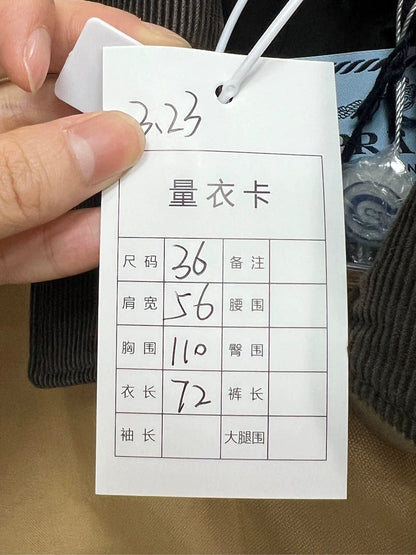 3.23
量衣卡
尺码 36 备注
肩宽 56 腰围
胸围 110 臀围
衣长 72 裤长
袖长 大腿围